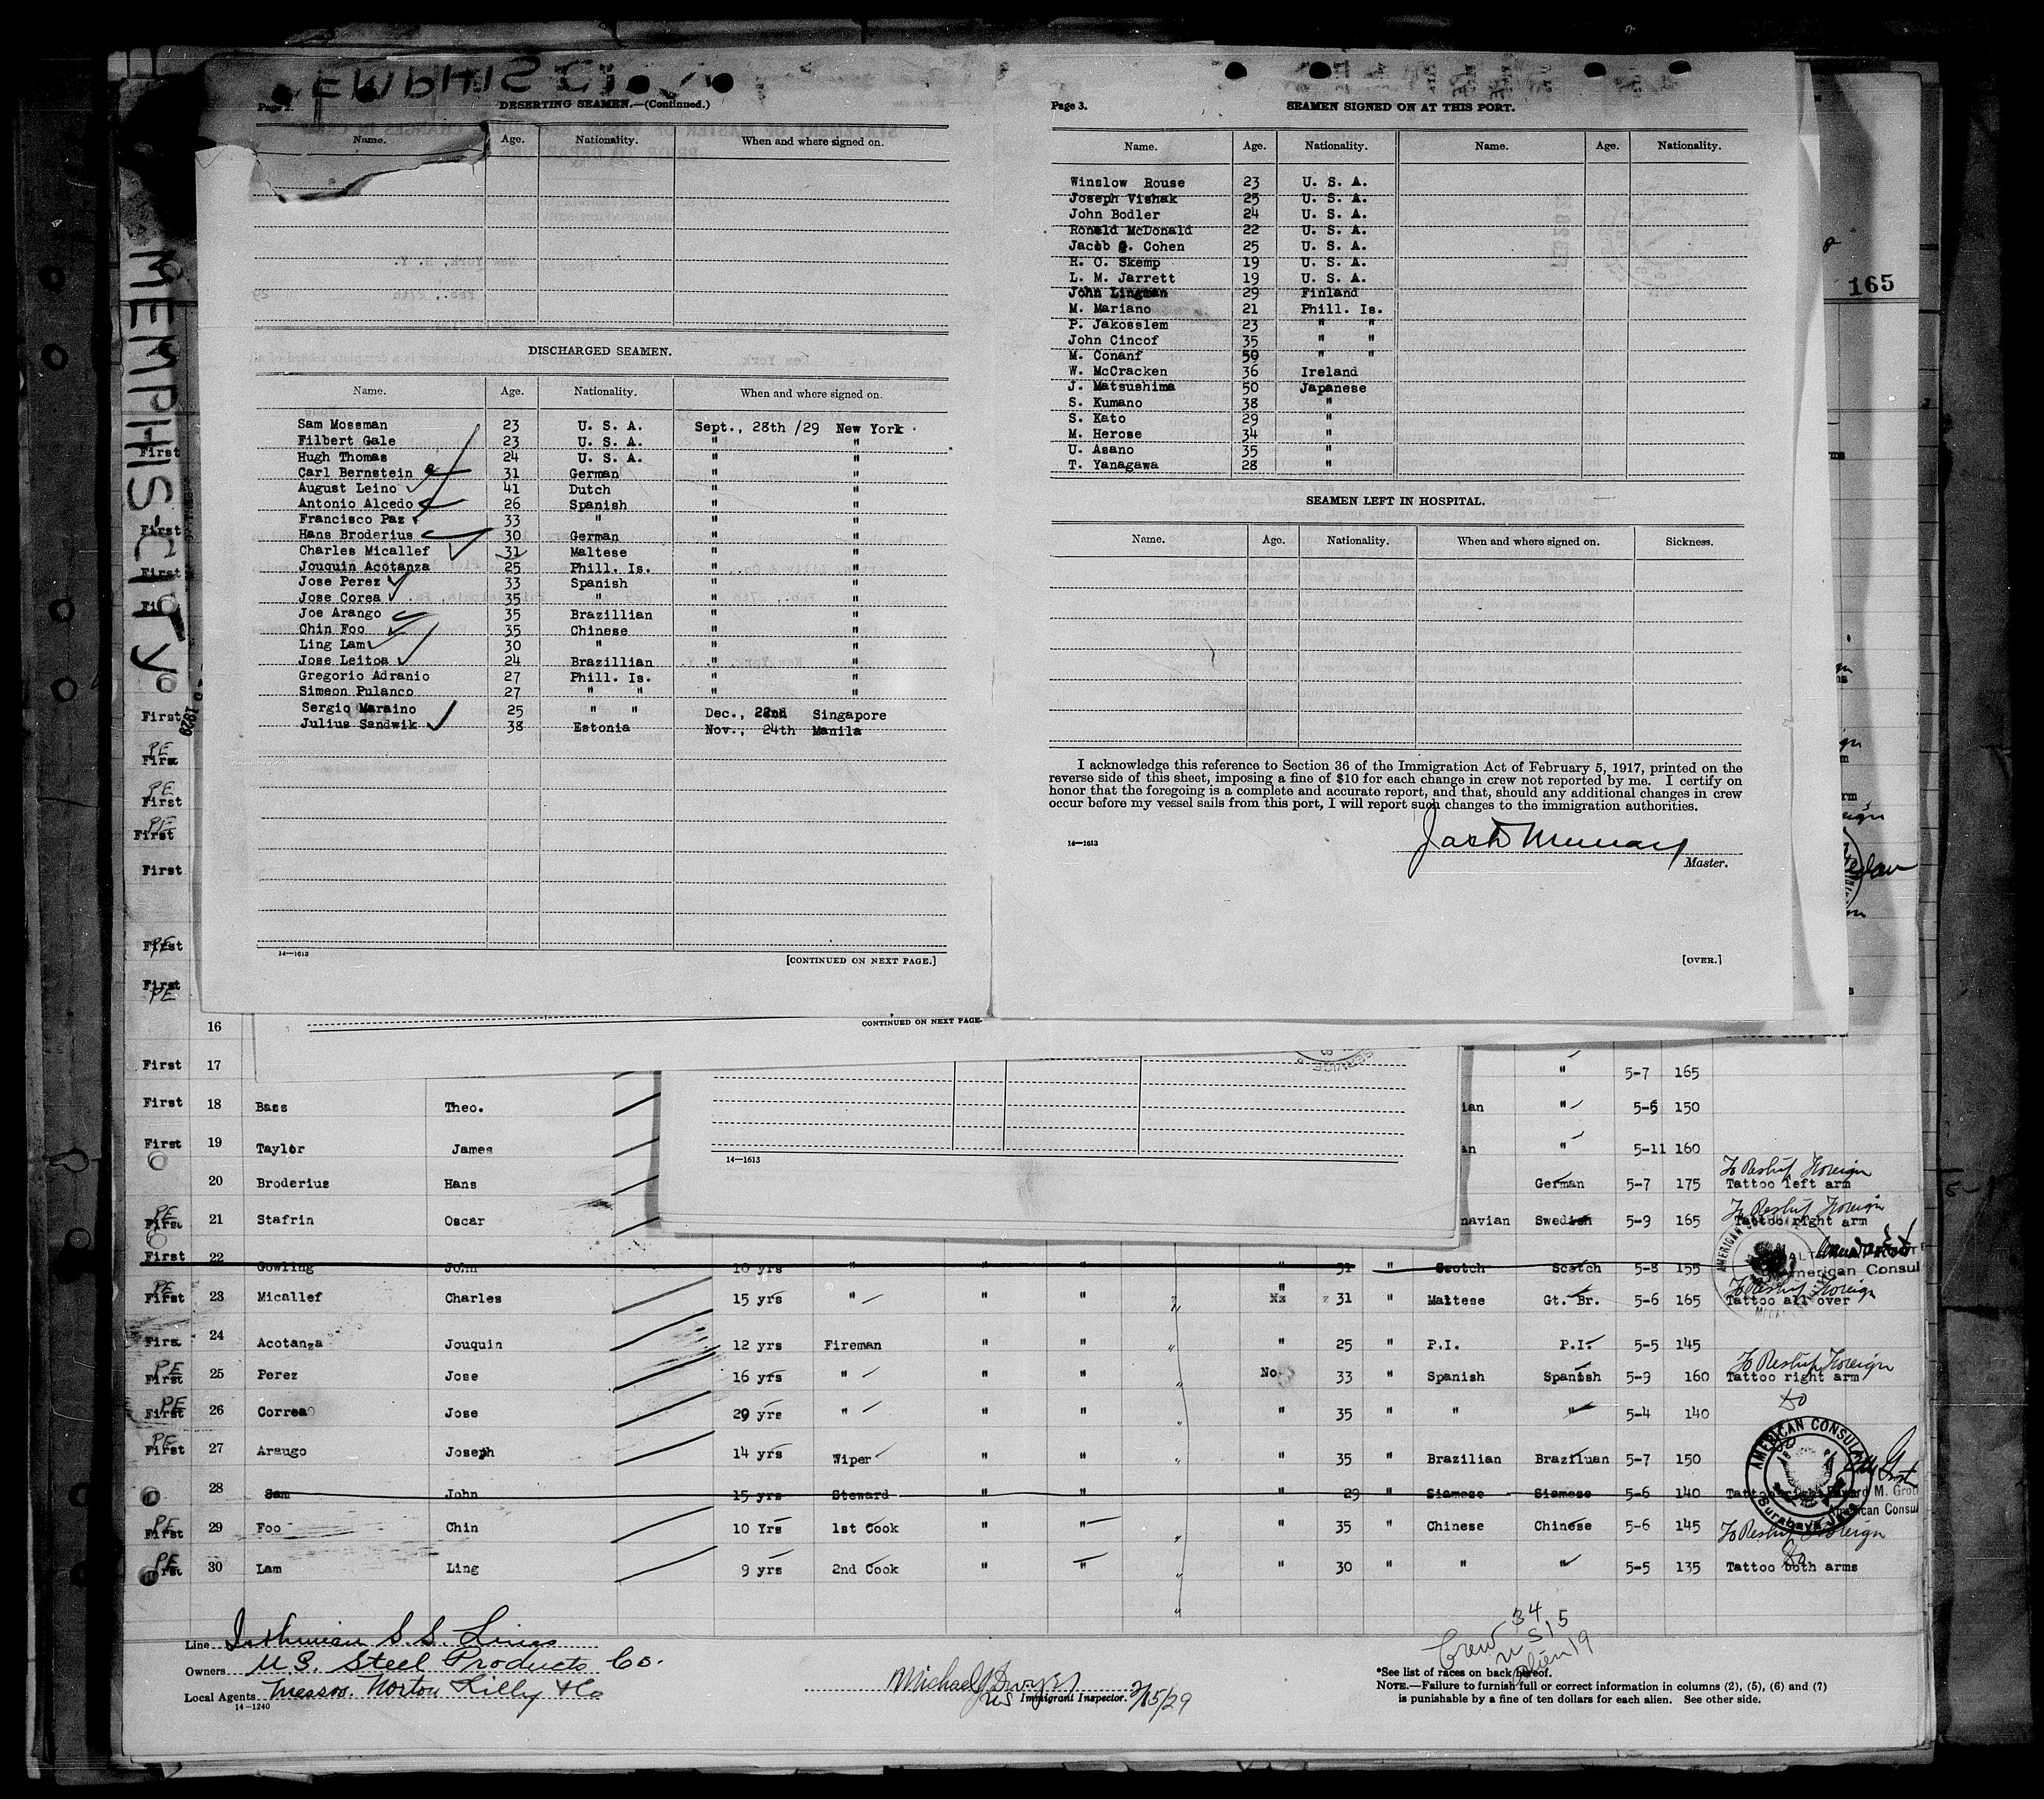 MEMPHIS-CITY
165
Page 2.
DESERTING SEAMEN.—(Continued.)
Name. Age. Nationality. When and where signed on.
DISCHARGED SEAMEN.
Name. Age. Nationality. When and where signed on.
Sam Mossman 23 U. S. A. Sept., 28th /29 New York
Filbert Gale 23 U. S. A. " "
Hugh Thomas 24 U. S. A. " "
Carl Bernstein 31 German " "
August Leino 41 Dutch " "
Antonio Alcedo 26 Spanish " "
Francisco Paz 33 " " "
Hans Broderius 30 German " "
Charles Micallef 31 Maltese " "
Jouquin Acotanza 25 Phill. Is. " "
Jose Perez 33 Spanish " "
Jose Corea 35 " " "
Joe Arango 35 Brazillian " "
Chin Foo 35 Chinese " "
Ling Lam 30 " " "
Jose Leitoa 24 Brazillian " "
Gregorio Adranio 27 Phill. Is. " "
Simeon Pulanco 27 " " " "
Sergio Maraino 25 " " Dec., 22nd Singapore
Julius Sandwik 38 Estonia Nov., 24th Manila
14—1613
[CONTINUED ON NEXT PAGE.]
Page 3.
SEAMEN SIGNED ON AT THIS PORT.
Name. Age. Nationality. Name. Age. Nationality.
Winslow Rouse 23 U. S. A.
Joseph Vishak 25 U. S. A.
John Bodler 24 U. S. A.
Ronald McDonald 22 U. S. A.
Jacob Cohen 25 U. S. A.
R. O. Skemp 19 U. S. A.
L. M. Jarrett 19 U. S. A.
John Lingman 29 Finland
M. Mariano 21 Phill. Is.
P. Jakosslem 23 " "
John Cincof 35 " "
M. Conanf 50 " "
W. McCracken 36 Ireland
J. Matsushima 50 Japanese
S. Kumano 38 "
S. Kato 29 "
M. Herose 34 "
U. Asano 35 "
T. Yanagawa 28 "
SEAMEN LEFT IN HOSPITAL.
Name. Age. Nationality. When and where signed on. Sickness.
I acknowledge this reference to Section 36 of the Immigration Act of February 5, 1917, printed on the
reverse side of this sheet, imposing a fine of $10 for each change in crew not reported by me. I certify on
honor that the foregoing is a complete and accurate report, and that, should any additional changes in crew
occur before my vessel sails from this port, I will report such changes to the immigration authorities.
14—1613
Murray
Master.
[OVER.]
CONTINUED ON NEXT PAGE
14—1613
16
First 17 " 5-7 165
First 18 Bass Theo. " 5-6 150
First 19 Taylor James " 5-11 160
To Reship Foreign
20 Broderius Hans German 5-7 175 Tattoo left arm
To Reship Foreign
PE First 21 Stafrin Oscar Swedish 5-9 165 Tattoo right arm
First 22 Gowling John 10 yrs " " " 31 " Scotch Scotch 5-8 155
American Consul
To Reship Foreign
PE First 23 Micallef Charles 15 yrs " " " " 31 " Maltese Gt. Br. 5-6 165 Tattoo all over
24 Acotanza Jouquin 12 yrs Fireman " " " " 25 " P.I. P.I. 5-5 145
To Reship Foreign
PE First 25 Perez Jose 16 yrs " " " " No 33 " Spanish Spanish 5-9 160 Tattoo right arm
PE First 26 Correa Jose 29 yrs " " " " " 35 " " " 5-4 140 do
PE First 27 Araugo Joseph 14 yrs Wiper " " " " 35 " Brazilian Braziluan 5-7 150
28 Sam John 15 yrs Steward " " " 29 " Siamese Siamese 5-6 140
AMERICAN CONSULATE
Surabaya, Java
American Consul
PE First 29 Foo Chin 10 Yrs 1st Cook " " " " 35 " Chinese Chinese 5-6 145 To Reship Foreign
PE First 30 Lam Ling 9 yrs 2nd Cook " " " " 30 " " " 5-5 135 do Tattoo both arms
Line Isthmian S. S. Lines
Owners U.S. Steel Products Co.
Local Agents Messrs. Norton Lilly & Co
14-1240
Michael J Dwyer
US Immigrant Inspector. 2/15/29
Crew 34
US 15
Alien 19
*See list of races on back hereof.
NOTE.—Failure to furnish full or correct information in columns (2), (5), (6) and (7)
is punishable by a fine of ten dollars for each alien. See other side.